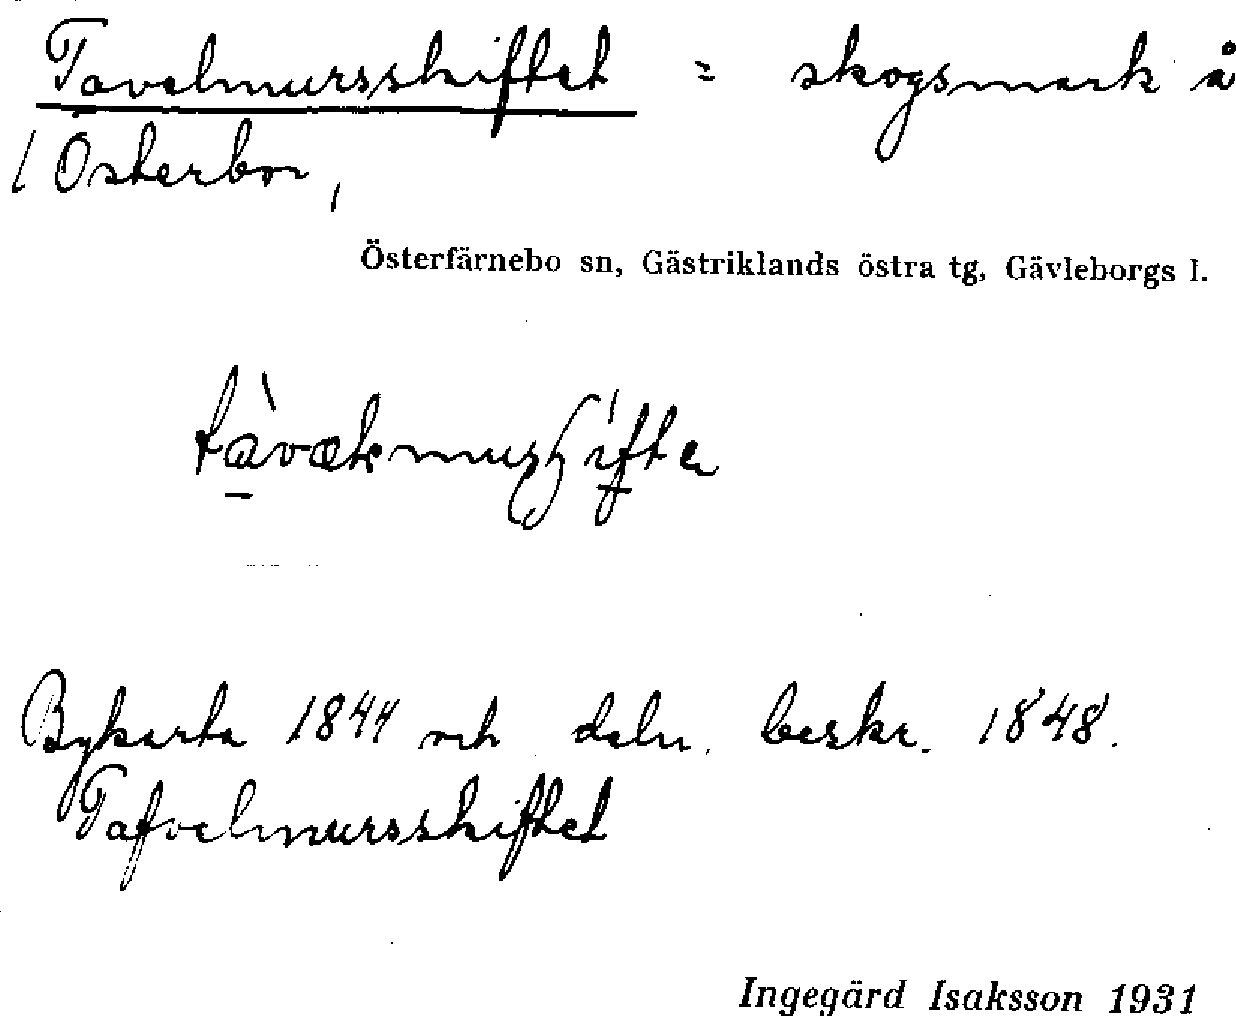 Tavelmursskiftet = skogsmark å
/ Österbor,
Österfärnebo sn, Gästriklands östra tg, Gävleborgs l.
Bykarta 1844 och deln. beskr. 1848.
Tafvelmursskiftet
Ingegärd Isaksson 1931